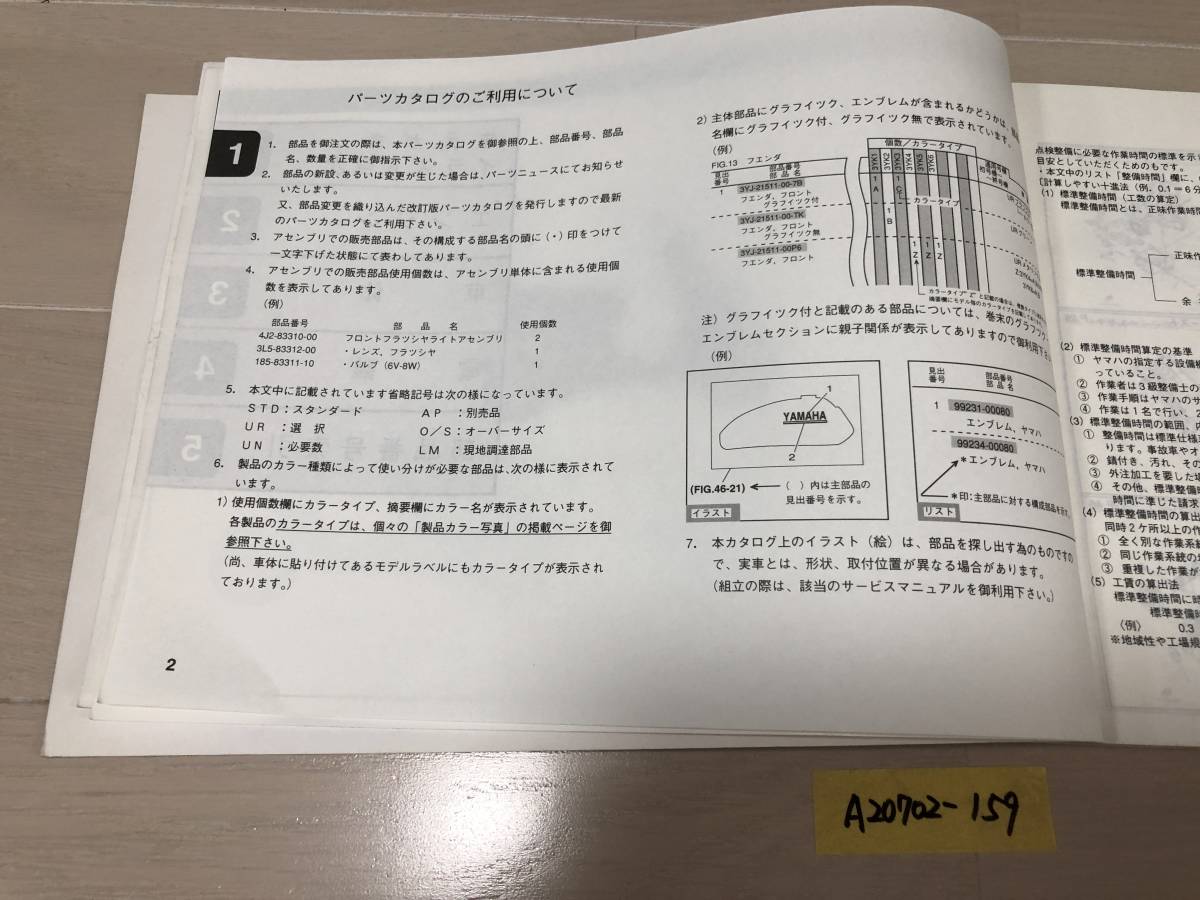 パーツカタログのご利用について
1
1. 部品を御注文の際は、本パーツカタログを御参照の上、部品番号、部品
名、数量を正確に御指示下さい。
2. 部品の新設、あるいは変更が生じた場合は、パーツニュースにてお知らせ
いたします。
又、部品変更を織り込んだ改訂版パーツカタログを発行しますので最新
のパーツカタログをご利用下さい。
3. アセンブリでの販売部品は、その構成する部品名の頭に(・)印をつけて
一文字下げた状態にて表わしてあります。
4. アセンブリでの販売部品使用個数は、アセンブリ単体に含まれる使用個
数を表示してあります。
(例)
部品番号 部品名 使用個数
4J2-83310-00 フロントフラツシヤライトアセンブリ 2
3L5-83312-00 ・レンズ，フラツシヤ 1
185-83311-10 ・バルブ (6V-8W) 1
5. 本文中に記載されています省略記号は次の様になっています。
STD：スタンダード AP：別売品
UR：選択 O/S：オーバーサイズ
UN：必要数 LM：現地調達部品
6. 製品のカラー種類によって使い分けが必要な部品は、次の様に表示されて
います。
1) 使用個数欄にカラータイプ、摘要欄にカラー名が表示されています。
各製品のカラータイプは、個々の「製品カラー写真」の掲載ページを御
参照下さい。
(尚、車体に貼り付けてあるモデルラベルにもカラータイプが表示され
ております。)
2
2) 主体部品にグラフイツク、エンブレムが含まれるかどうかは、
名欄にグラフイツク付、グラフイツク無で表示されています。
(例)
個数／カラータイプ
FIG.13 フエンダ
見出番号 部品番号 部品名
1 3YJ-21511-00-7B
フエンダ，フロント
グラフイツク付
3YJ-21511-00-TK
フエンダ，フロント
グラフイツク無
3YJ-21511-00P6
フエンダ，フロント
カラータイプ
注) グラフイツク付と記載のある部品については、巻末のグラフイツク、
エンブレムセクションに親子関係が表示してありますので御利用下さ
(例)
1
YAMAHA
2
(FIG.46-21) ( )内は主部品の
見出番号を示す。
イラスト
見出番号 部品番号 部品名
1 99231-00080
エンブレム，ヤマハ
99234-00080
*エンブレム，ヤマハ
*印：主部品に対する構成部品を示す。
リスト
7. 本カタログ上のイラスト（絵）は、部品を探し出す為のものですの
で、実車とは、形状、取付位置が異なる場合があります。
(組立の際は、該当のサービスマニュアルを御利用下さい。)
点検整備に必要な作業時間の標準を示
目安としていただくためのものです。
・本文中のリスト「整備時間」欄に、
〔計算しやすい十進法（例．0.1＝6分
(1) 標準整備時間（工数の算定）
標準整備時間とは、正味作業時間
正味作
標準整備時間
余
(2) 標準整備時間算定の基準
① ヤマハの指定する設備機
っていること。
② 作業者は3級整備士の
③ 作業手順はヤマハのサ
④ 作業は1名で行い、
(3) 標準整備時間の範囲、
① 整備時間は標準仕様
ります。事故車やオ
② 錆付き、汚れ、その
③ 外注加工を要した場
④ その他、標準整備
時間に準じた請求
(4) 標準整備時間の算出
同時2ケ所以上の作
① 全く別な作業系統
② 同じ作業系統の
③ 重複した作業が
(5) 工賃の算出法
標準整備時間に時
標準整備時
〈例〉 0.3
※地域性や工場規
A20702-159